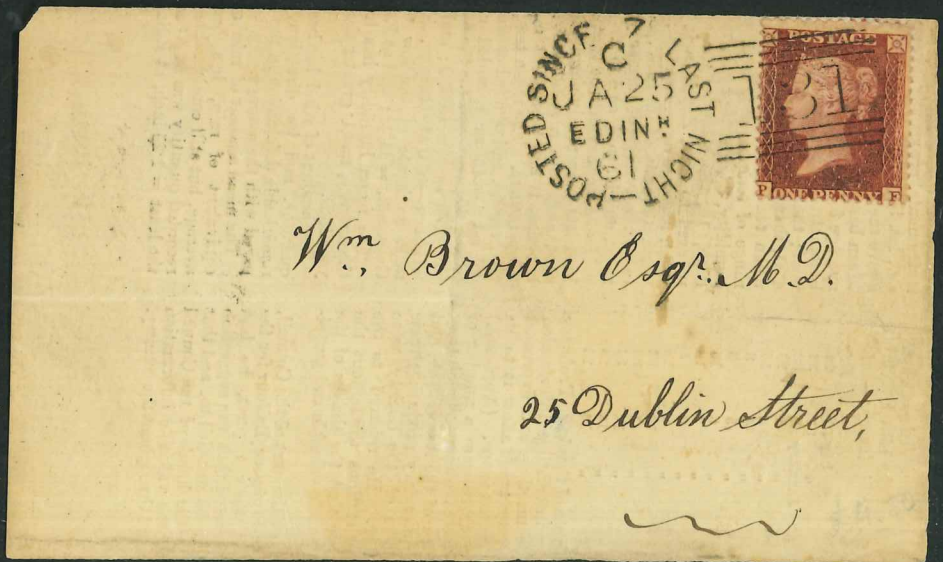 POSTED SINCE 7 LAST NIGHT
C
JA 25
EDINH
61
131
POSTAGE
P ONE PENNY F
Wm. Brown Esqr. M.D.
25 Dublin Street,